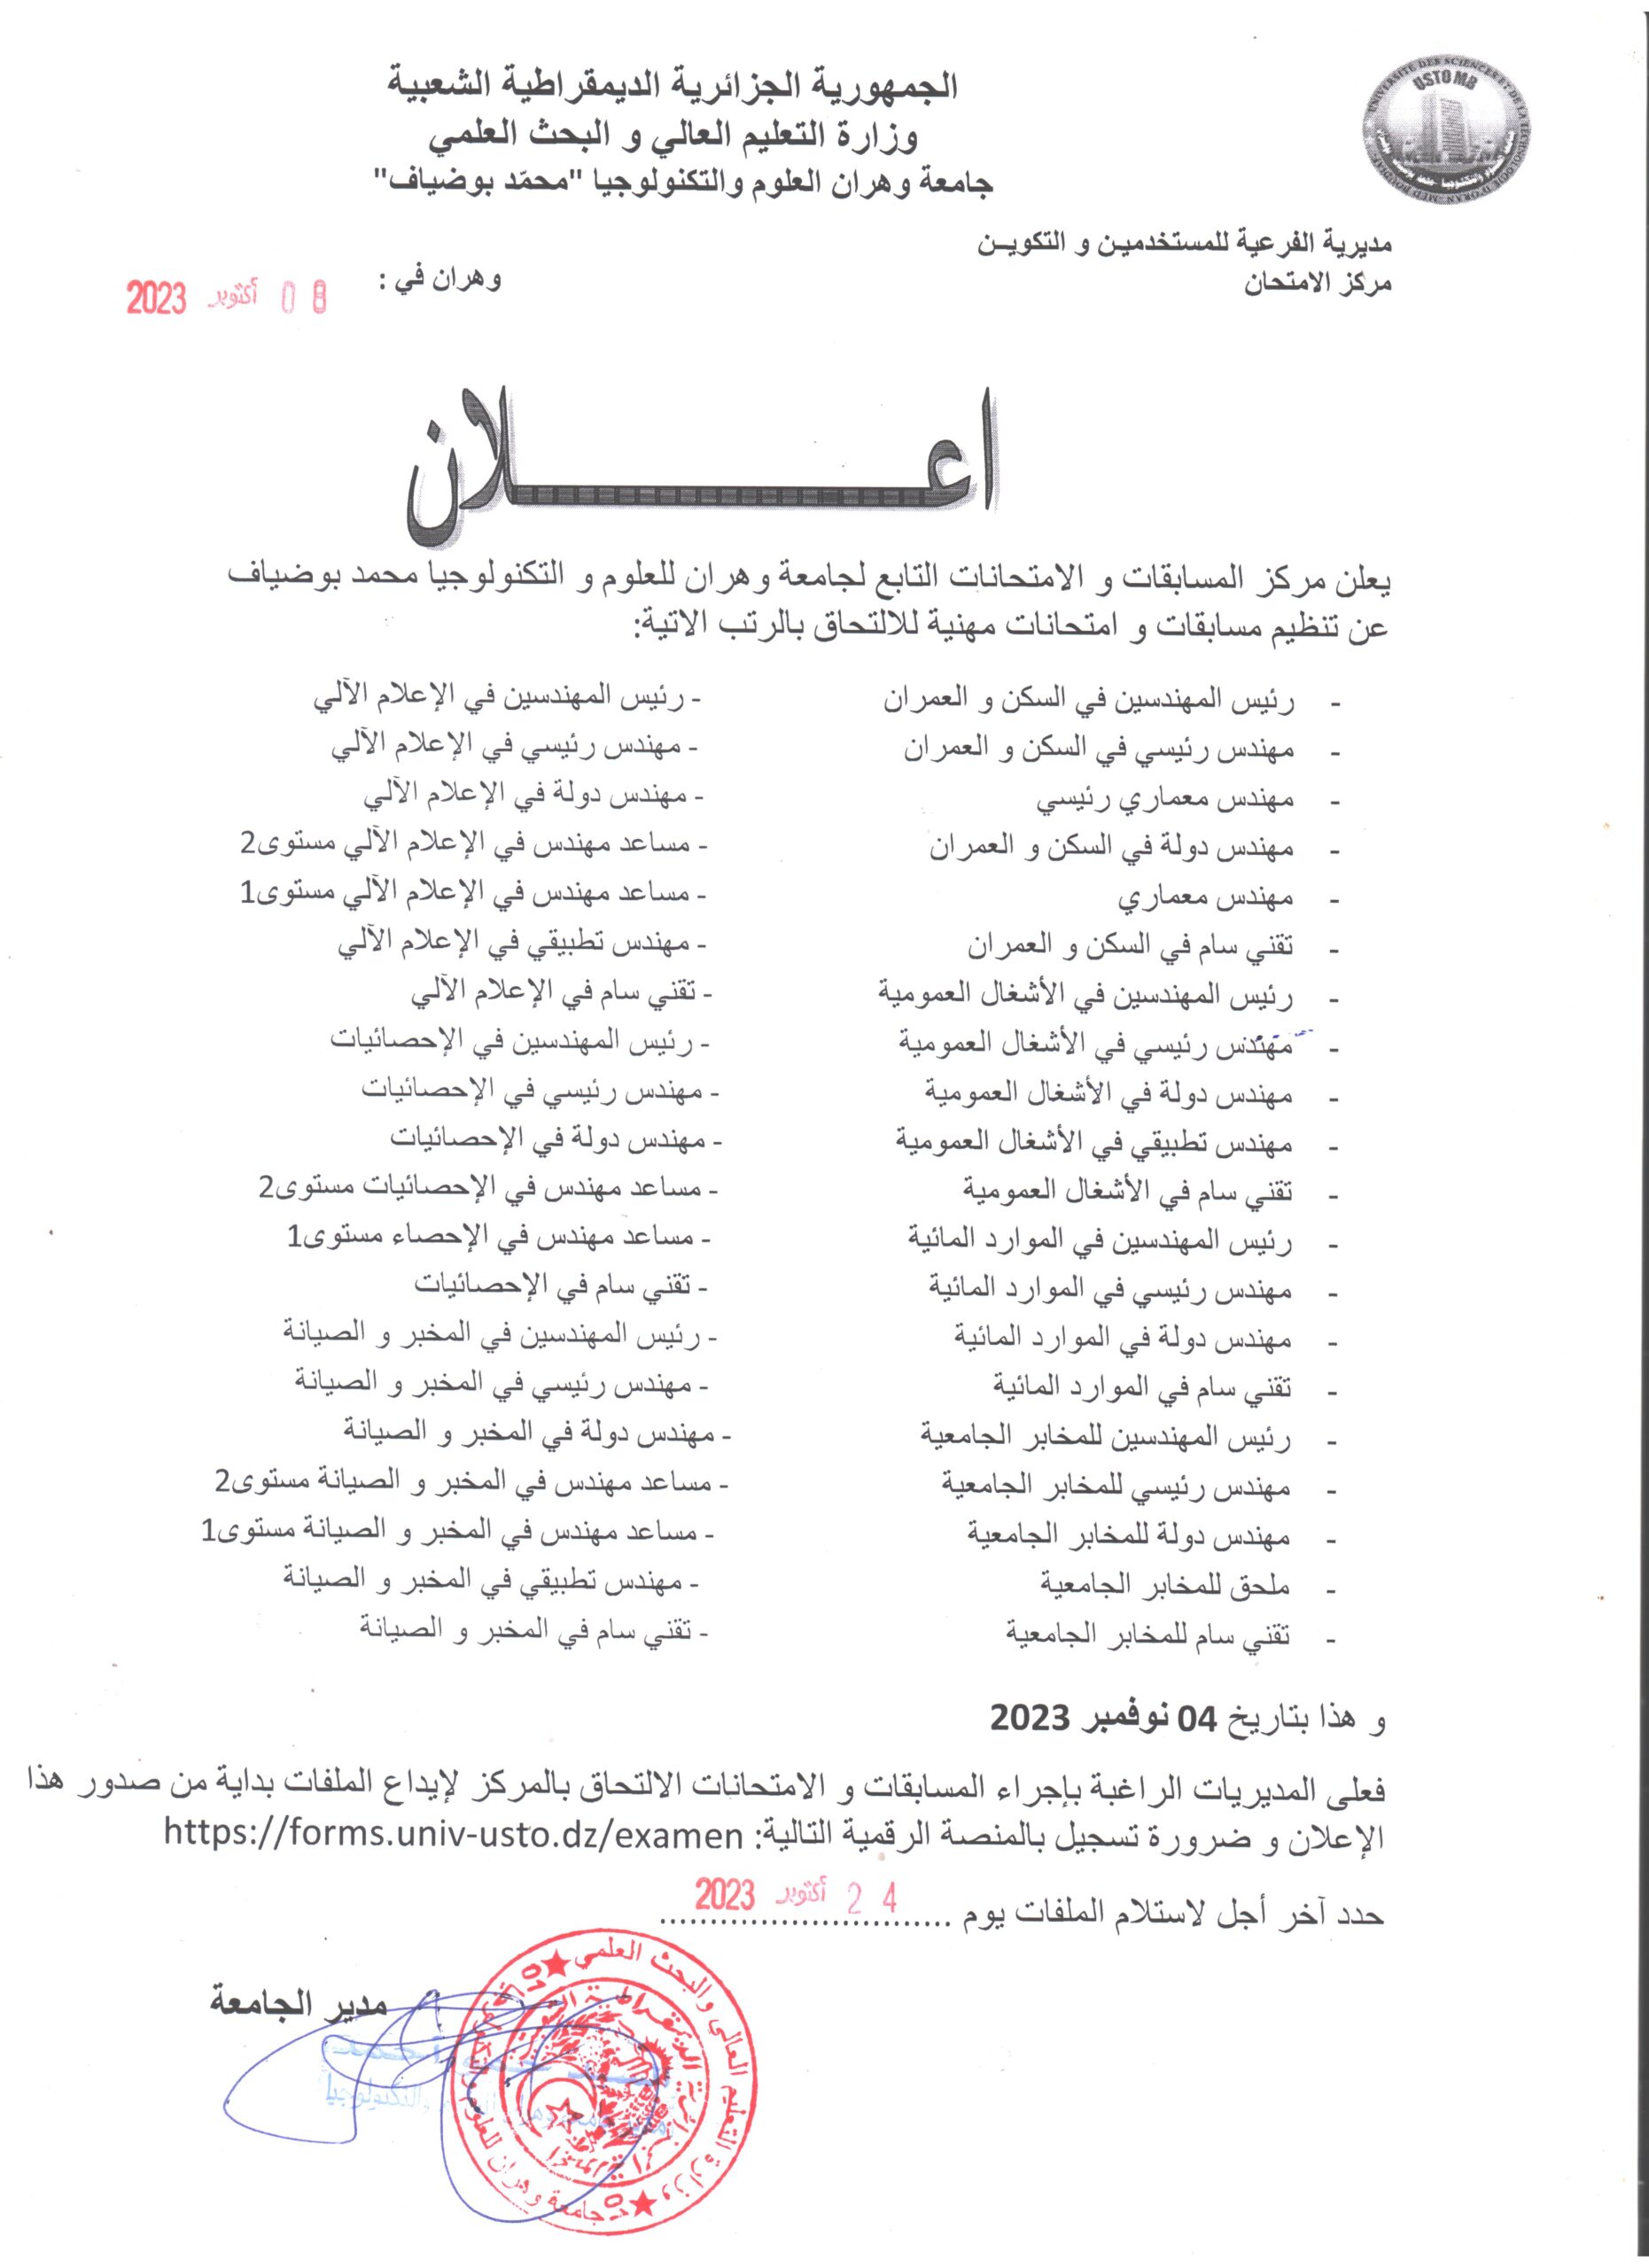 UNIVERSITE DES SCIENCES ET DE LA TECHNOLOGIE D'ORAN
USTOMB
الجمهورية الجزائرية الديمقراطية الشعبية
وزارة التعليم العالي و البحث العلمي
جامعة وهران العلوم والتكنولوجيا "محمّد بوضياف"
مديرية الفرعية للمستخدمين و التكويــن
مركز الامتحان
وهران في : 08 أكتوبر 2023
اعـــــــــــلان
يعلن مركز المسابقات و الامتحانات التابع لجامعة وهران للعلوم و التكنولوجيا محمد بوضياف
عن تنظيم مسابقات و امتحانات مهنية للالتحاق بالرتب الاتية:
- رئيس المهندسين في السكن و العمران
- مهندس رئيسي في السكن و العمران
- مهندس معماري رئيسي
- مهندس دولة في السكن و العمران
- مهندس معماري
- تقني سام في السكن و العمران
- رئيس المهندسين في الأشغال العمومية
- مهندس رئيسي في الأشغال العمومية
- مهندس دولة في الأشغال العمومية
- مهندس تطبيقي في الأشغال العمومية
- تقني سام في الأشغال العمومية
- رئيس المهندسين في الموارد المائية
- مهندس رئيسي في الموارد المائية
- مهندس دولة في الموارد المائية
- تقني سام في الموارد المائية
- رئيس المهندسين للمخابر الجامعية
- مهندس رئيسي للمخابر الجامعية
- مهندس دولة للمخابر الجامعية
- ملحق للمخابر الجامعية
- تقني سام للمخابر الجامعية
- رئيس المهندسين في الإعلام الآلي
- مهندس رئيسي في الإعلام الآلي
- مهندس دولة في الإعلام الآلي
- مساعد مهندس في الإعلام الآلي مستوى2
- مساعد مهندس في الإعلام الآلي مستوى1
- مهندس تطبيقي في الإعلام الآلي
- تقني سام في الإعلام الآلي
- رئيس المهندسين في الإحصائيات
- مهندس رئيسي في الإحصائيات
- مهندس دولة في الإحصائيات
- مساعد مهندس في الإحصائيات مستوى2
- مساعد مهندس في الإحصاء مستوى1
- تقني سام في الإحصائيات
- رئيس المهندسين في المخبر و الصيانة
- مهندس رئيسي في المخبر و الصيانة
- مهندس دولة في المخبر و الصيانة
- مساعد مهندس في المخبر و الصيانة مستوى2
- مساعد مهندس في المخبر و الصيانة مستوى1
- مهندس تطبيقي في المخبر و الصيانة
- تقني سام في المخبر و الصيانة
و هذا بتاريخ 04 نوفمبر 2023
فعلى المديريات الراغبة بإجراء المسابقات و الامتحانات الالتحاق بالمركز لإيداع الملفات بداية من صدور هذا
الإعلان و ضرورة تسجيل بالمنصة الرقمية التالية: https://forms.univ-usto.dz/examen
حدد آخر أجل لاستلام الملفات يوم ............................ 24 أكتوبر 2023
مدير الجامعة
وزارة التعليم العالي والبحث العلمي
جامعة وهران للعلوم والتكنولوجيا